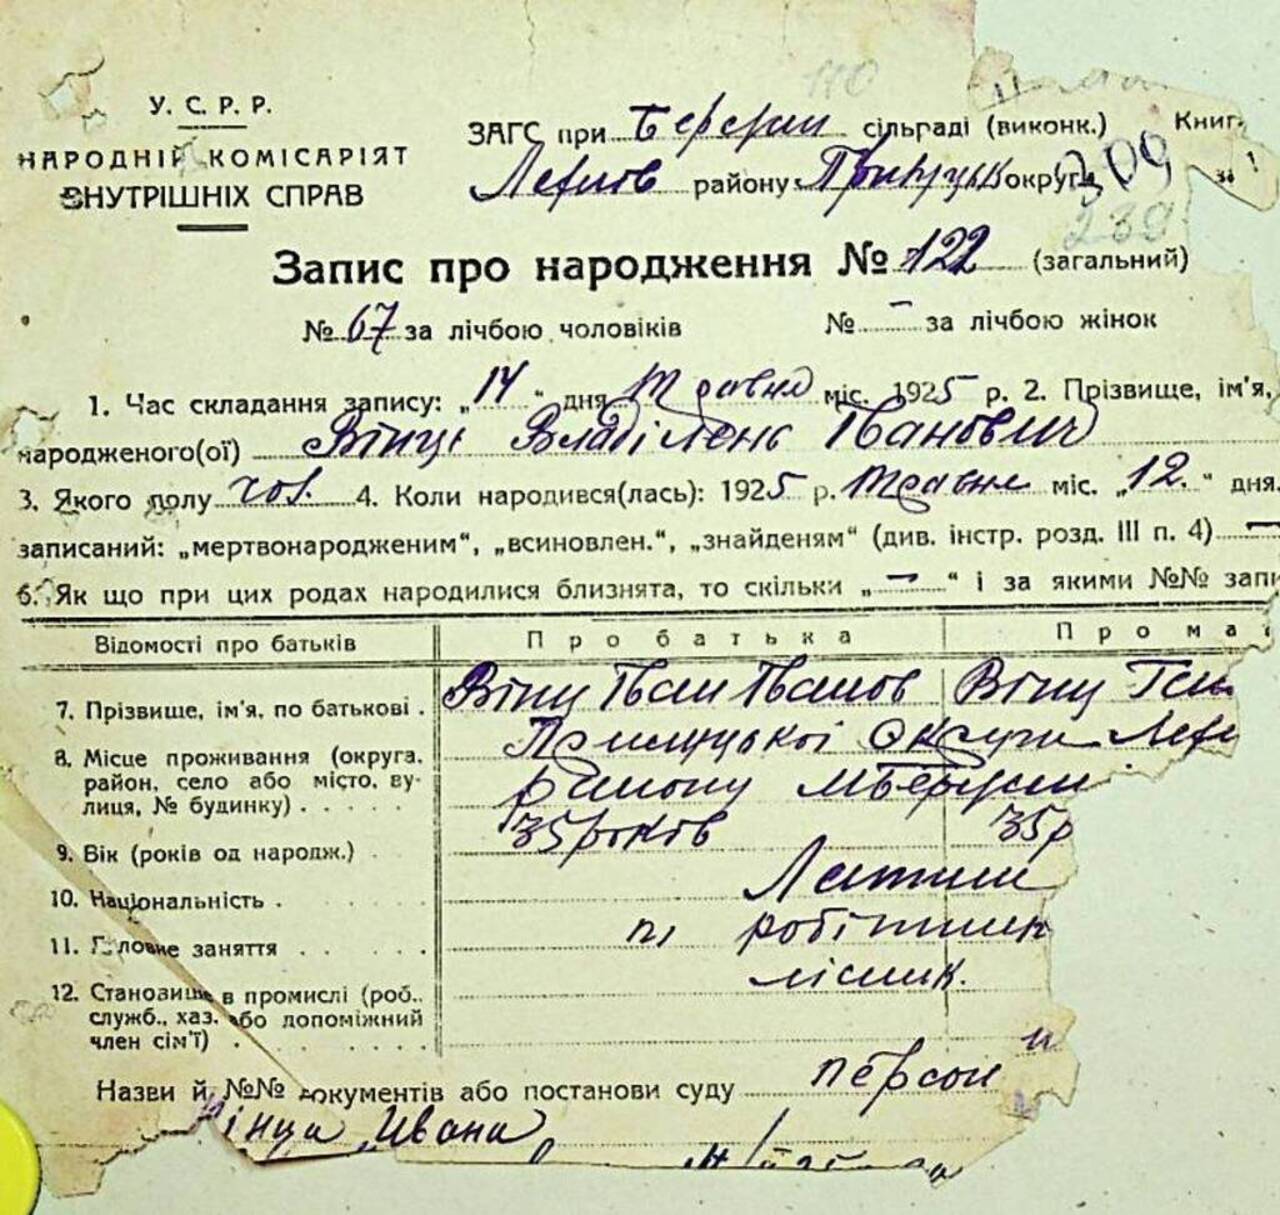 110
У. С. Р. Р.
НАРОДНІЙ КОМІСАРІЯТ
ВНУТРІШНІХ СПРАВ
ЗАГС при сільраді (виконк.) Книг.
району округи 309 за
239
Запис про народження № 122 (загальний)
№ 67 за лічбою чоловіків № – за лічбою жінок
1. Час складання запису: „14“ дня травня міс. 1925 р. 2. Прізвище, ім'я,
народженого(ої) Вінце Владілень Іванович
3. Якого полу чол. 4. Коли народився(лась): 1925 р. травня міс. „12.“ дня.
записаний: „мертвонародженим“, „всиновлен.“, „знайденям“ (див. інстр. розд. III п. 4) —
6. Як що при цих родах народилися близнята, то скільки „—“ і за якими №№ запи
Відомості про батьків Про батька Про ма
7. Прізвище, ім'я, по батькові . Вінц Іван Іванов Вінц
8. Місце проживання (округа, район, село або місто, вулиця, № будинку) . . . . . Округи
району
9. Вік (років од народж.) . 35 років 35 р
10. Національність . Латиші
11. Головне заняття . . . . робітник
12. Становище в промислі (роб., служб., хаз. або допоміжний член сім'ї) . . . . . . .
Назви й №№ документів або постанови суду персон
Вінца Ивана